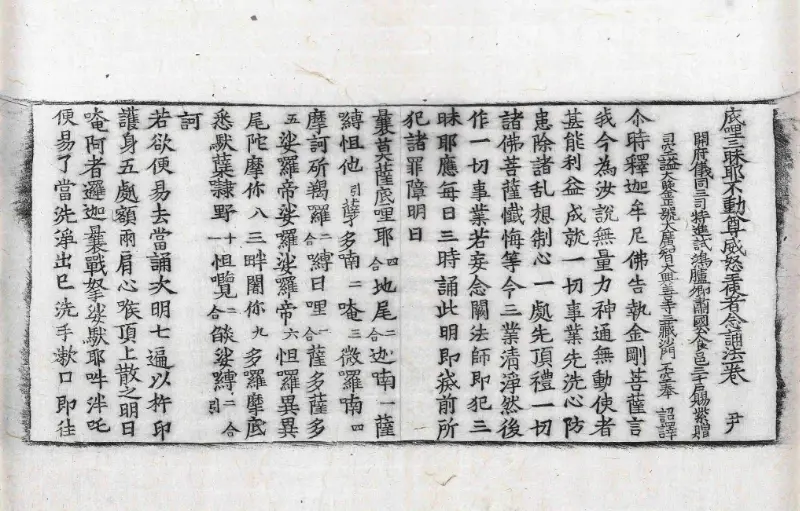 底哩三昧耶不動尊威怒王使者念誦法一卷 尹
開府儀同三司特進試鴻臚卿肅國公食邑三千戶賜紫贈
司空謚大鑒正號大廣智大興善寺三藏沙門不空奉 詔譯
尒時釋迦牟尼佛告執金剛菩薩言
我今為汝說無量力神通無動使者
甚能利益成就一切事業先洗心防
患除諸乱想制心一處先頂禮一切
諸佛菩薩懺悔等令三業清淨然後
作一切事業若妄念闕法師即犯三
昧耶應每日三時誦此明即滅前所
犯諸罪障明曰
曩莫薩底哩耶四合地尾二合迦喃一薩
縛怛他引孽多喃二唵三微羅喃四
摩訶斫羯羅二合縛日哩一合薩多薩多
五娑羅帝娑羅娑羅帝六怛羅異異
尾陀摩你八三畔闍你九多羅摩底
悉馱蘗隸野十怛囕二合燄娑縛二合引
訶
若欲便易去當誦次明七遍以杵印
護身五處額兩肩心喉頂上散之明曰
唵阿者邏迦曩戰拏娑馱耶吽泮吒
便易了當洗淨出已洗手漱口即往